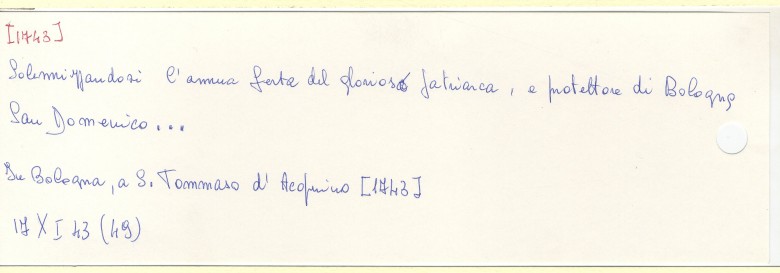 [1743]
Solennizzandosi l'annua festa del glorioso Patriarca, e protettore di Bologna
San Domenico...
In Bologna, a S. Tommaso d'Acquino [1743]
17 X I 43 (49)